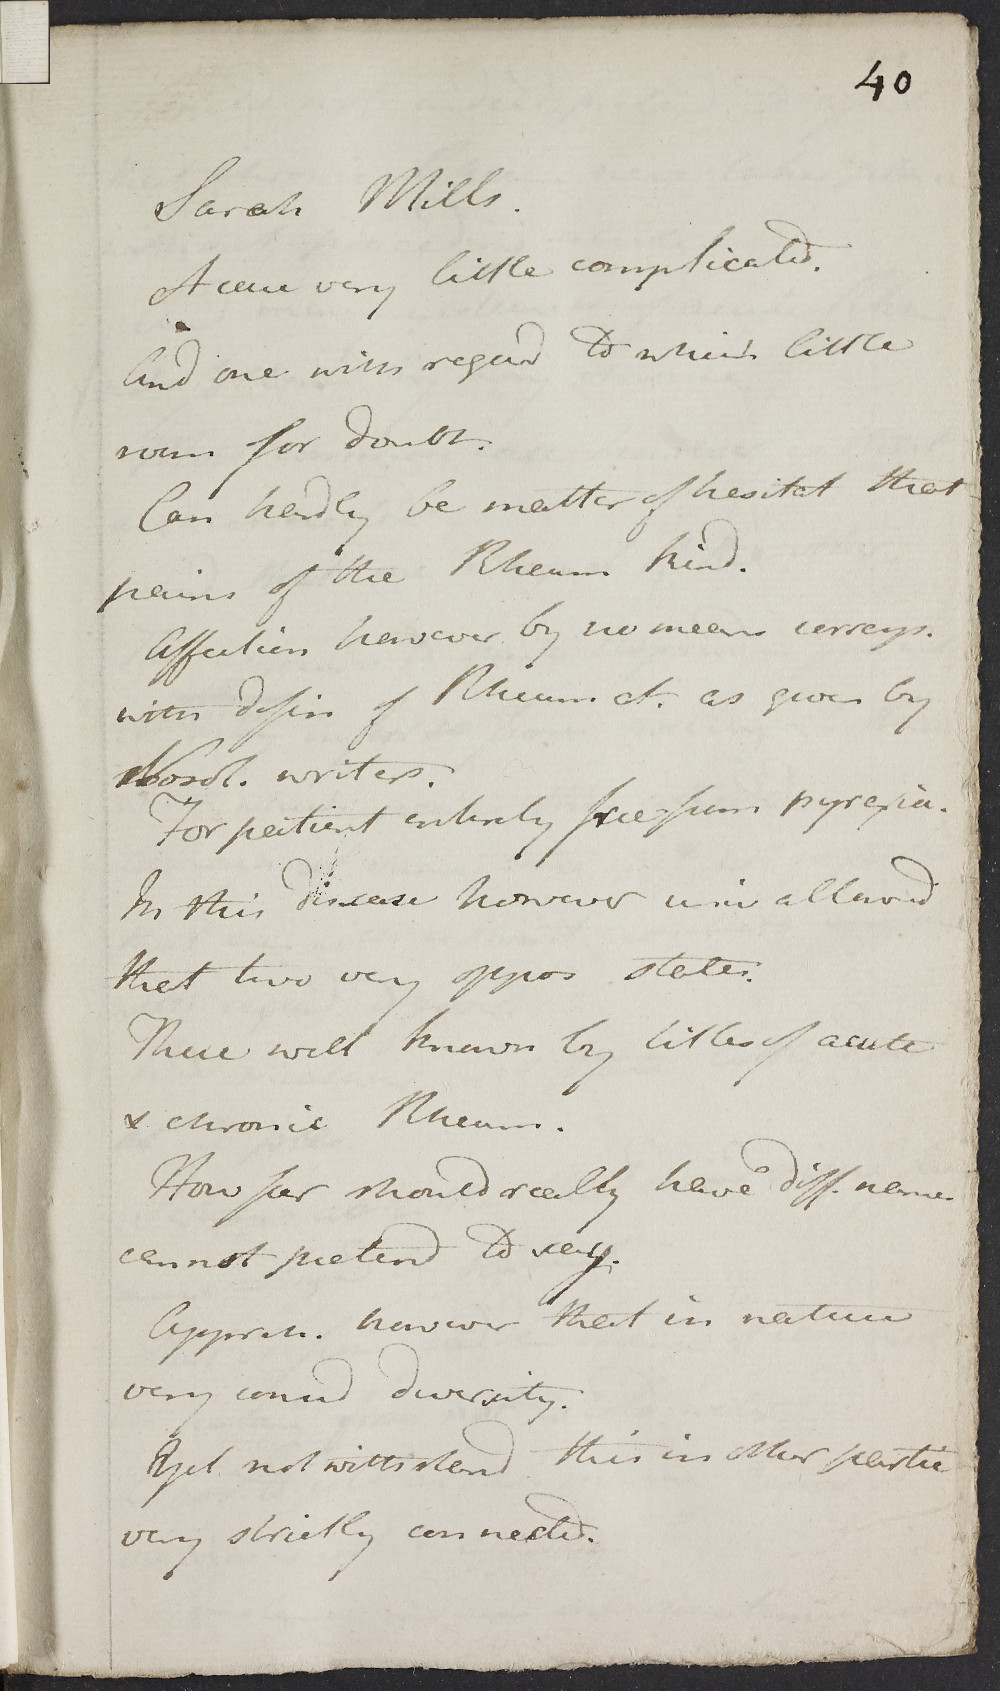 40
Sarah Mills.
A case very little complicated.
And one with regard to which little
room for doubt.
Can hardly be matter of hesitat that
pains of the Rheum kind.
Affection however by no means corresp.
with defin of Rheum at. as given by
Nosol. writers.
For patient entirely free from pyrexia.
In this disease however univ allowed
that two very oppos states.
These well known by titles of acute
& chronic Rheum.
How far should really have diff. names
cannot pretend to say.
Appreh. however that in nature
very consid diversity.
Yet notwithstand this in other partic
very strictly connected.